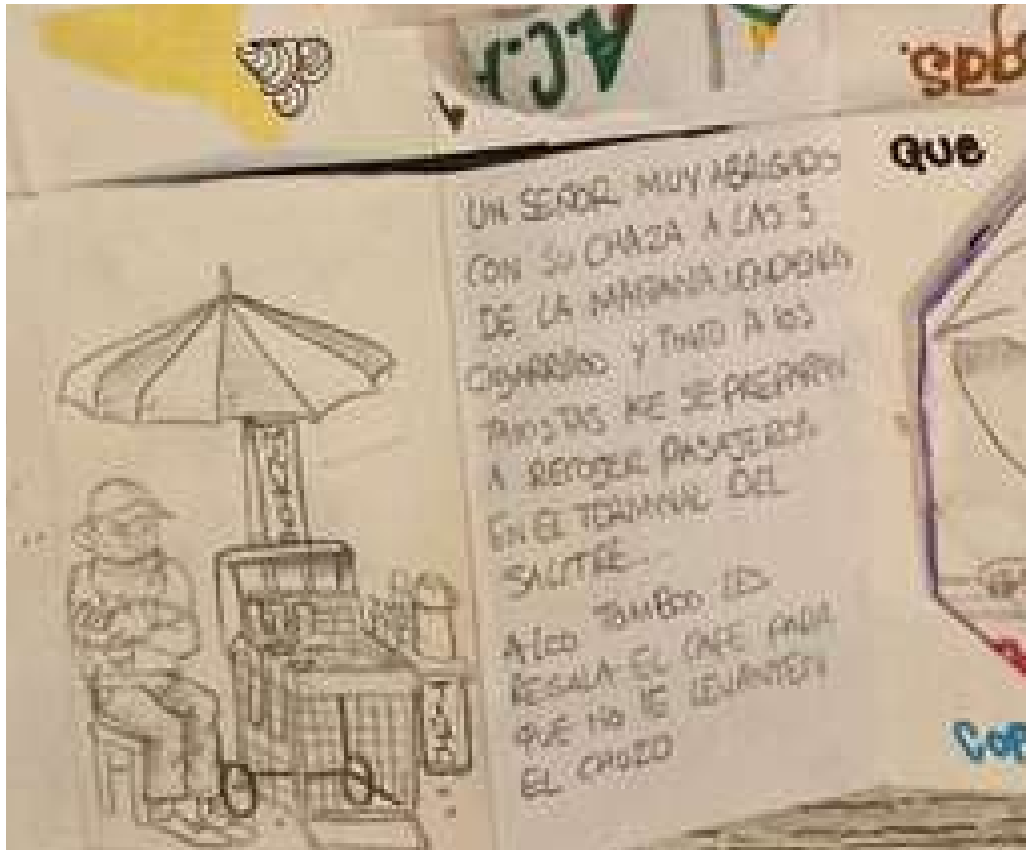 QUE
UN SEÑOR MUY ABRIGADO
CON SU CHAZA A LAS 3
DE LA MAÑANA VENDIENDO
CIGARRILLOS Y TINTO A LOS
TAXISTAS KE SE PREPARAN
A RECOGER PASAJEROS
EN EL TERMINAL DEL
SALITRE...
A LOS TOMBOS LES
REGALA EL CAFE PARA
QUE NO LE LEVANTEN
EL CHUZO
MINUTOS
TINTO